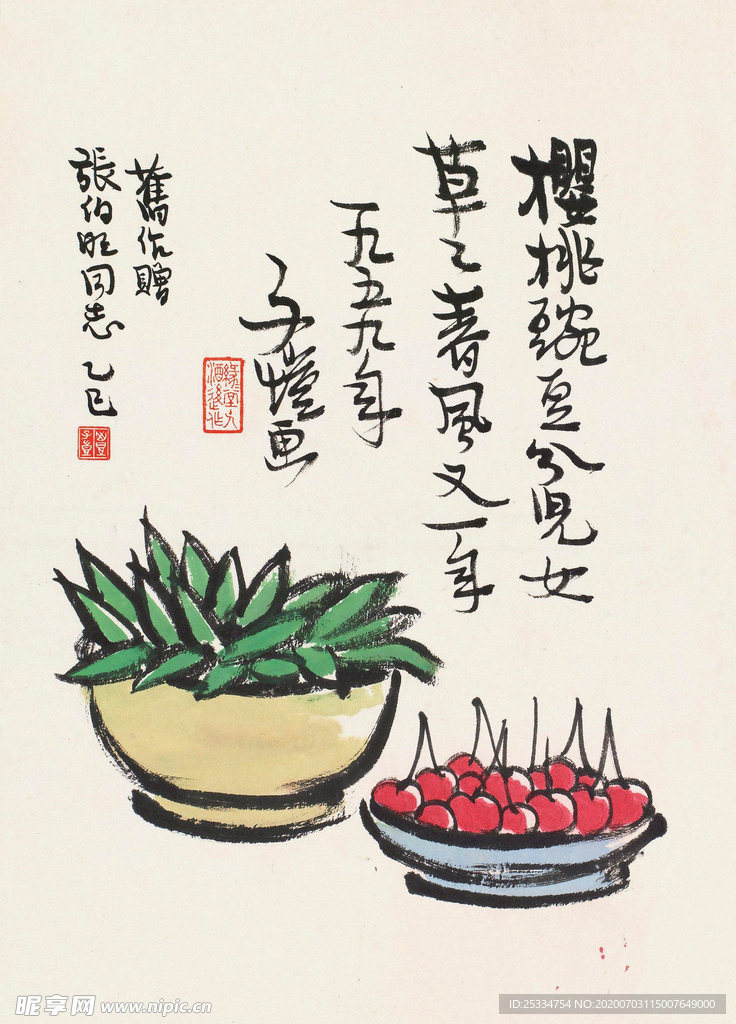 櫻桃豌豆分兒女
草々春風又一年
一九五九年
子愷画
舊作贈
張伯旺同志 乙巳
昵享网 www.nipic.cn
ID:25334754 NO:20200703115007649000